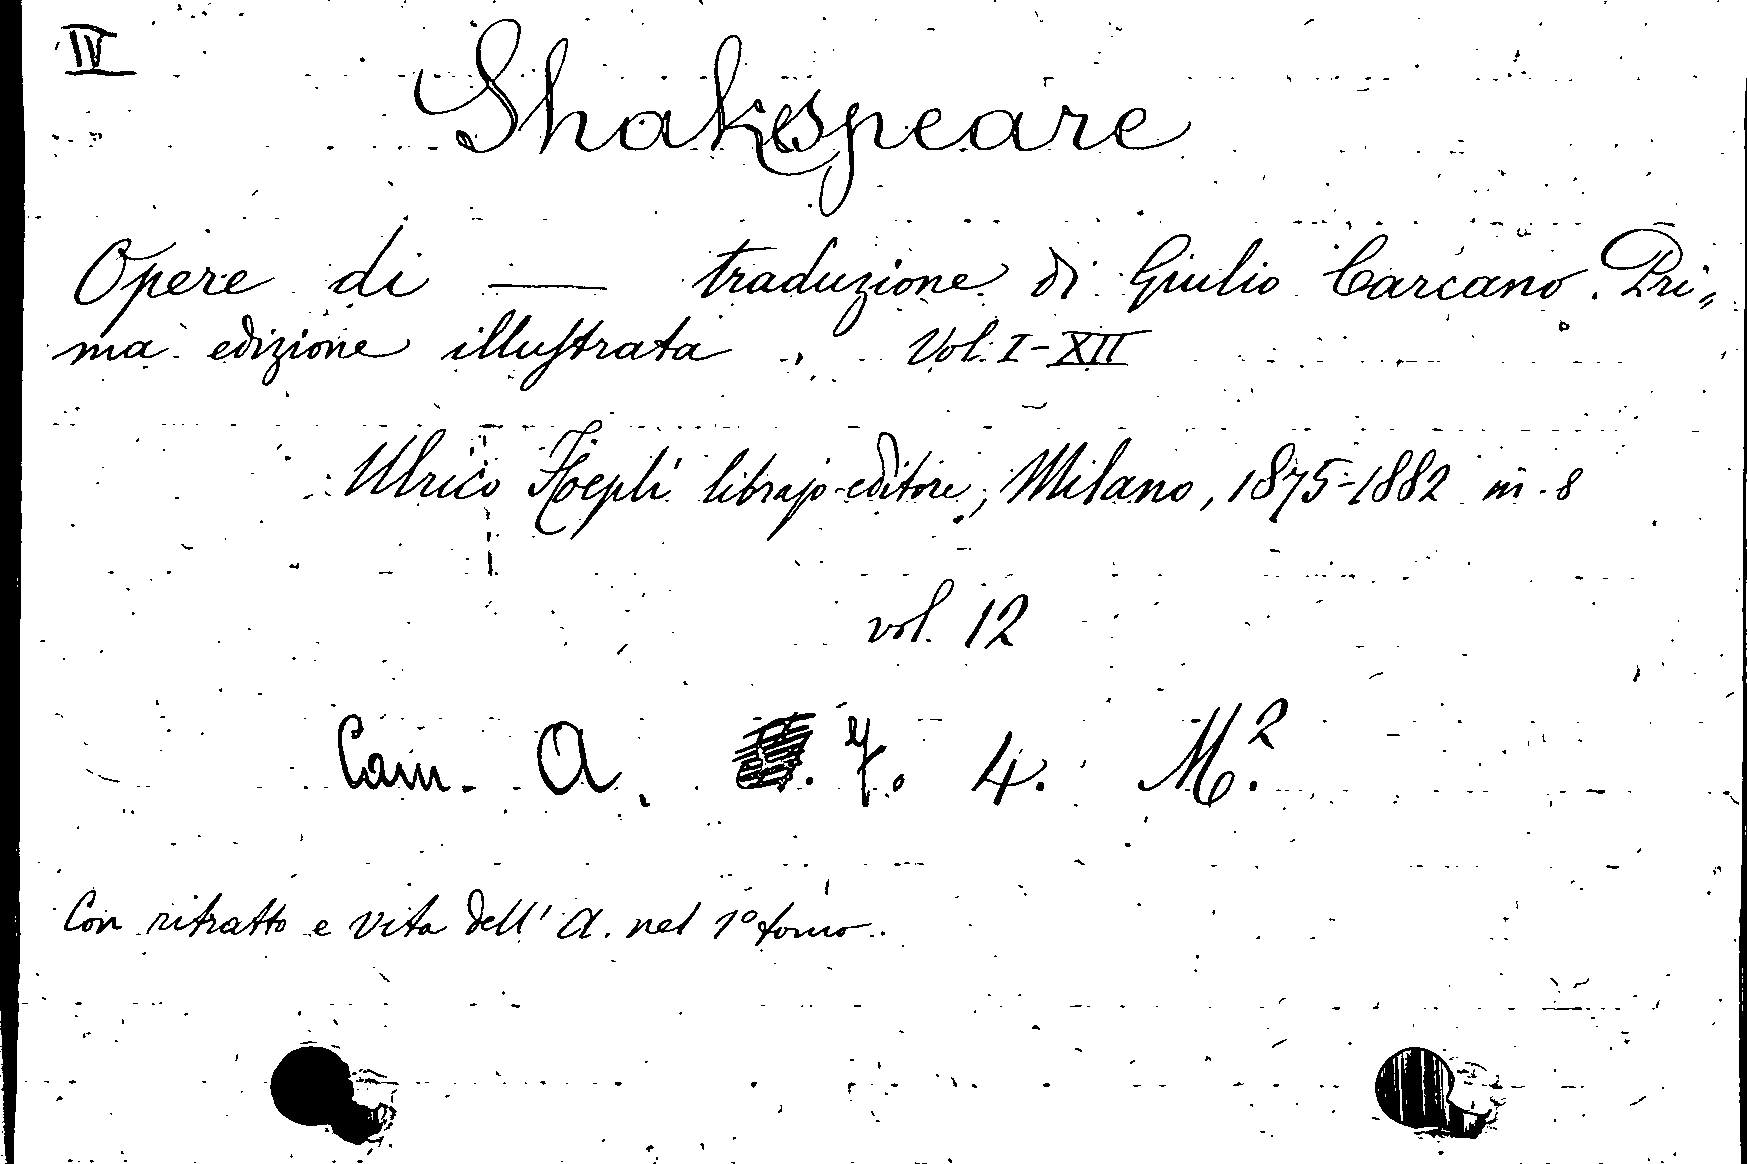 IV
Shakespeare
Opere di —— traduzione di Giulio Carcano. Pri-
ma edizione illustrata. Vol. I-XII
Ulrico Hoepli librajo-editore, Milano, 1875-1882 in-8
vol. 12
Cam. A. 4. M.²
Con ritratto e vita dell' A. nel 1° tomo.